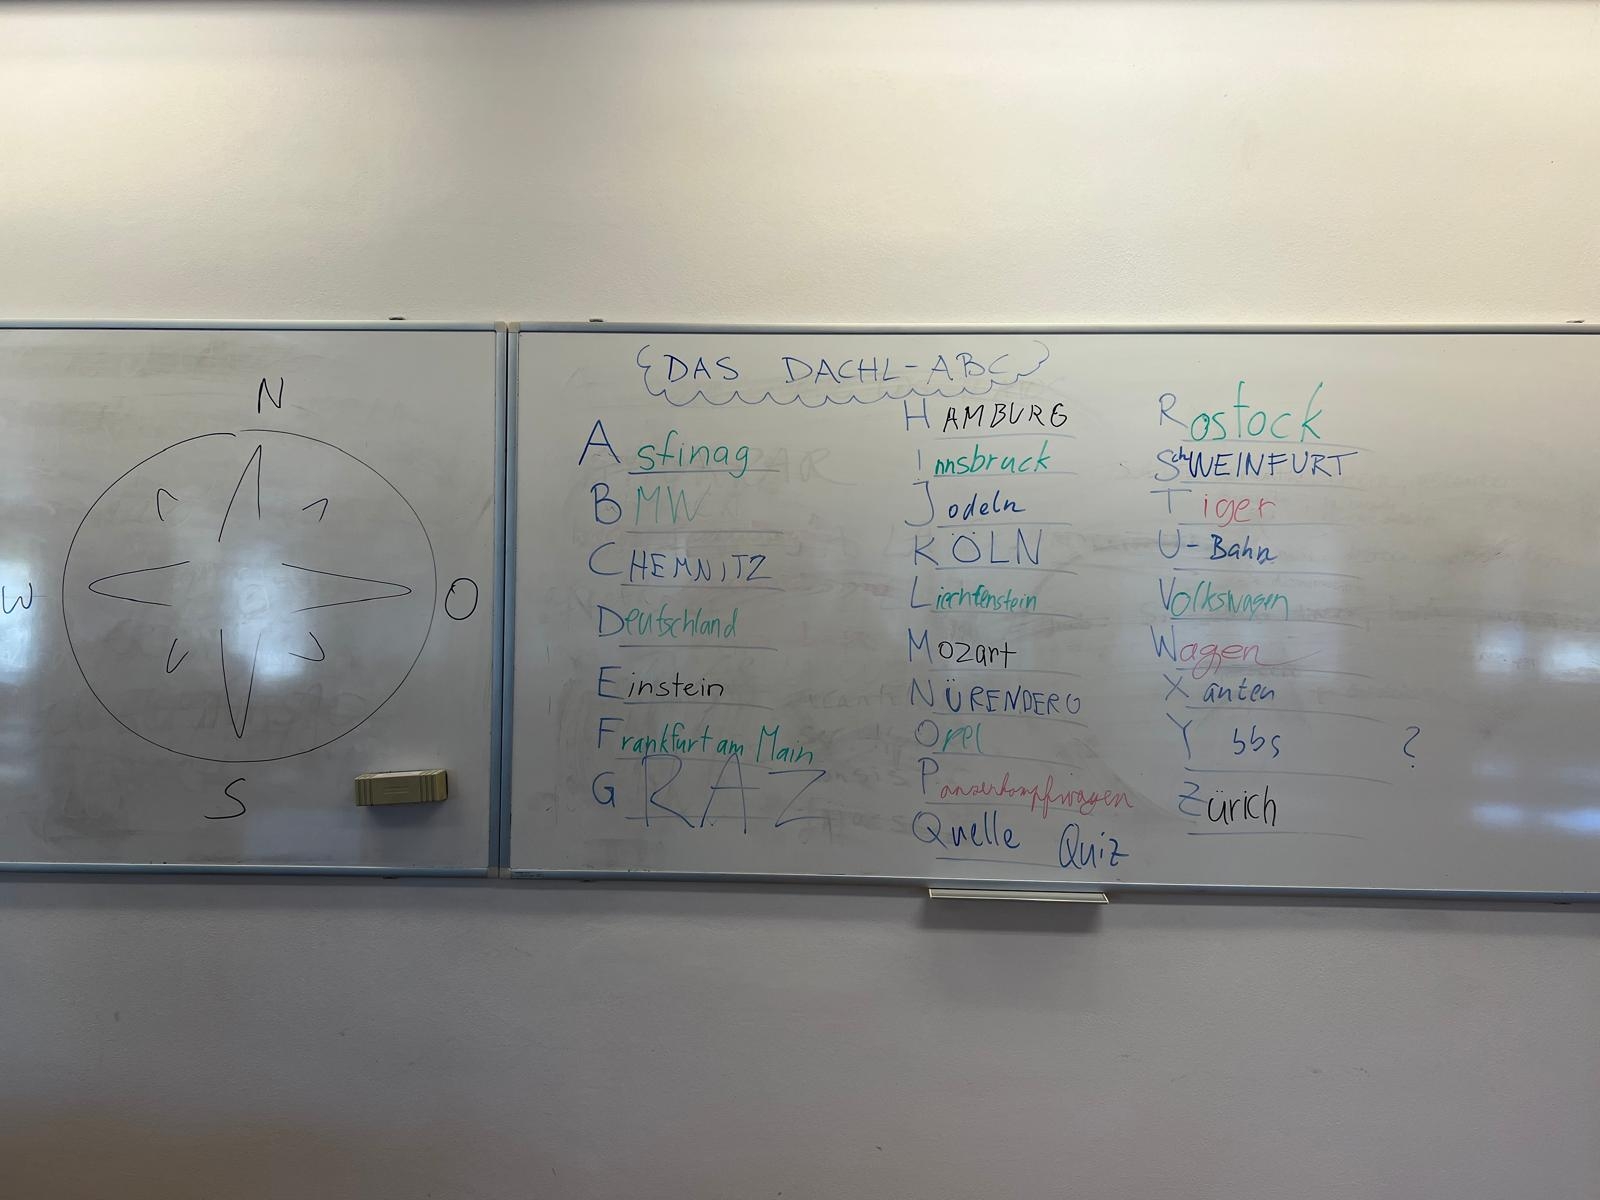 N
W
O
S
DAS DACHL-ABC
Asfinag
BMW
CHEMNITZ
Deutschland
Einstein
Frankfurt am Main
GRAZ
HAMBURG
Innsbruck
Jodeln
KÖLN
Liechtenstein
Mozart
NÜRENBERG
Opel
Panzerkampfwagen
Quelle Quiz
Rostock
SchWEINFURT
Tiger
U-Bahn
Volkswagen
Wagen
Xanten
Ybbs ?
Zürich